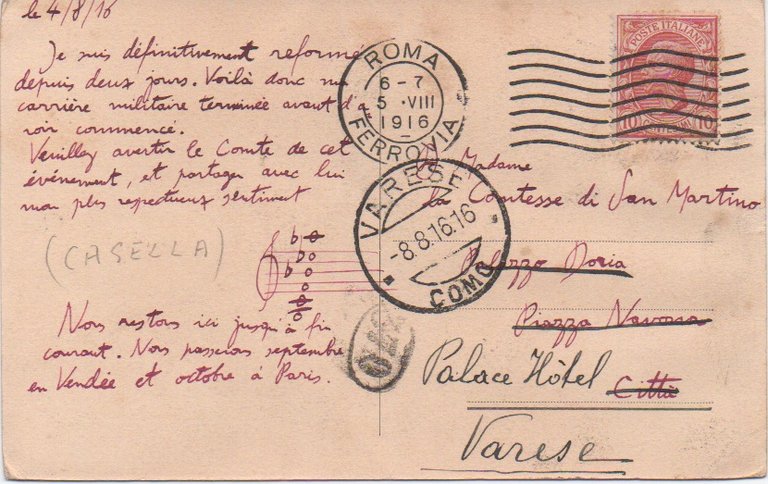 le 4/8/16
Je suis définitivement reformé
depuis deux jours. Voilà donc ma
carrière militaire terminée avant d'a-
voir commencé.
Veuillez avertir le Comte de cet
événement, et partager avec lui
mon plus repectueux sentiment
(CASELLA)
Nous restons ici jusqu'à fin
courant. Nous passerons septembre
en Vendée et octobre à Paris.
ROMA
6-7
5 VIII
1916
FERROVIA
POSTE ITALIANE
10 10
VARESE
-8.8.16.16
COMO
Madame
la Comtesse di San Martino
Palazzo Doria
Piazza Navona
Città
Palace Hôtel
Varese